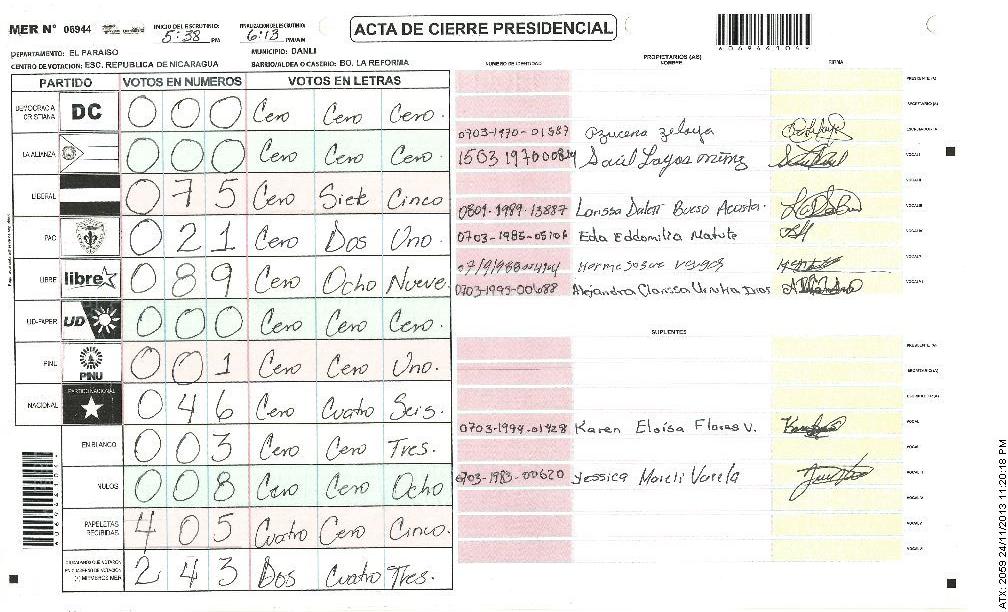 MER Nº 06944 INICIO DEL ESCRUTINIO: 5:38 PM FINALIZACION DEL ESCRUTINIO: 6:13 PM/AM ACTA DE CIERRE PRESIDENCIAL
DEPARTAMENTO: EL PARAISO MUNICIPIO: DANLI
CENTRO DE VOTACION: ESC. REPUBLICA DE NICARAGUA BARRIO/ALDEA O CASERIO: BO. LA REFORMA
PARTIDO VOTOS EN NUMEROS VOTOS EN LETRAS
DEMOCRACIA CRISTIANA DC 0 0 0 Cero Cero Cero.
LA ALIANZA 0 0 0 Cero Cero Cero.
LIBERAL 0 7 5 Cero Siete Cinco
PAC 0 2 1 Cero Dos Uno.
LIBRE libre 0 8 9 Cero Ocho Nueve.
UD-FAPER UD 0 0 0 Cero Cero Cero.
PINU PINU 0 0 1 Cero Cero Uno.
NACIONAL PARTIDO NACIONAL 0 4 6 Cero Cuatro Seis.
EN BLANCO 0 0 3 Cero Cero Tres.
NULOS 0 0 8 Cero Cero Ocho
PAPELETAS RECIBIDAS 4 0 5 Cuatro Cero Cinco.
CIUDADANOS QUE VOTARON EN CUADERNO DE VOTACION (+) MIEMBROS MER 2 4 3 Dos Cuatro Tres.
NUMERO DE IDENTIDAD PROPIETARIOS (AS) NOMBRE FIRMA
PRESIDENTE (A)
SECRETARIO (A)
0703-1970-01587 Azucena Zelaya ESCRUTADOR (A)
Saúl Lagos VOCAL I
VOCAL II
0801-1989-13887 Larissa Bueso Acosta. VOCAL III
0703-1985-05106 Eda Eddomilia Matute
VOCAL V
0703-1995-00688 Alejandra Clarissa VOCAL VI
SUPLENTES
PRESIDENTE (A)
SECRETARIO (A)
ESCRUTADOR (A)
0703-1994-01428 Karen Eloísa Flores V. VOCAL I
VOCAL II
0703-1983-00620 Yessica Varela VOCAL III
VOCAL IV
VOCAL V
VOCAL VI
ATX: 2059 24/11/2013 11:20:18 PM